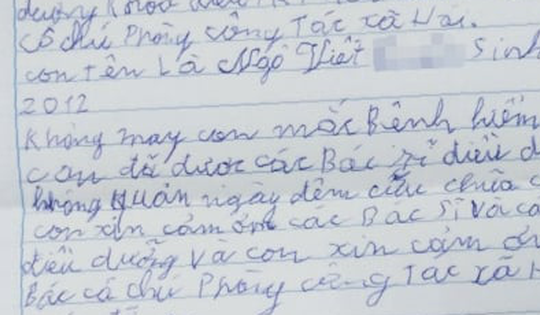 dưỡng khoa điều
cô chú Phòng công Tác xã Hội.
con tên Là Ngô Viết Sinh
2012
Không may con mắc Bệnh hiểm
con đã được các Bác sĩ điều d
không quản ngày đêm cứu chữa c
con xin cảm ơn các Bác Sĩ và cá
điều dưỡng và con xin cảm ơn
Bác cô chú Phòng công Tác xã H